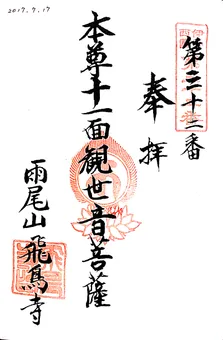 第三十二番
奉拝
本尊十一面観世音菩薩
雨尾山飛鳥寺